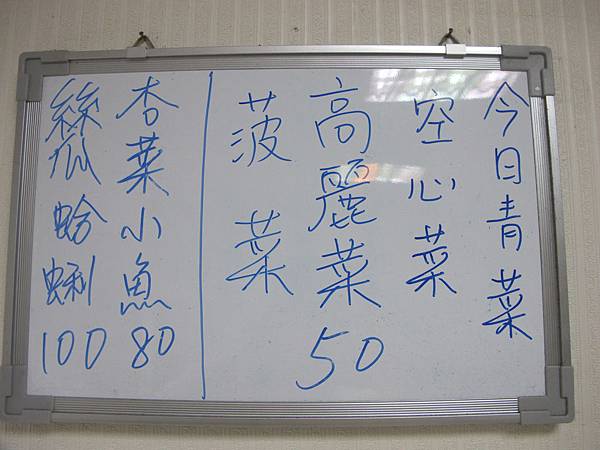 今日青菜
空心菜
高麗菜 50
菠菜
杏菜小魚 80
絲瓜蛤蜊 100